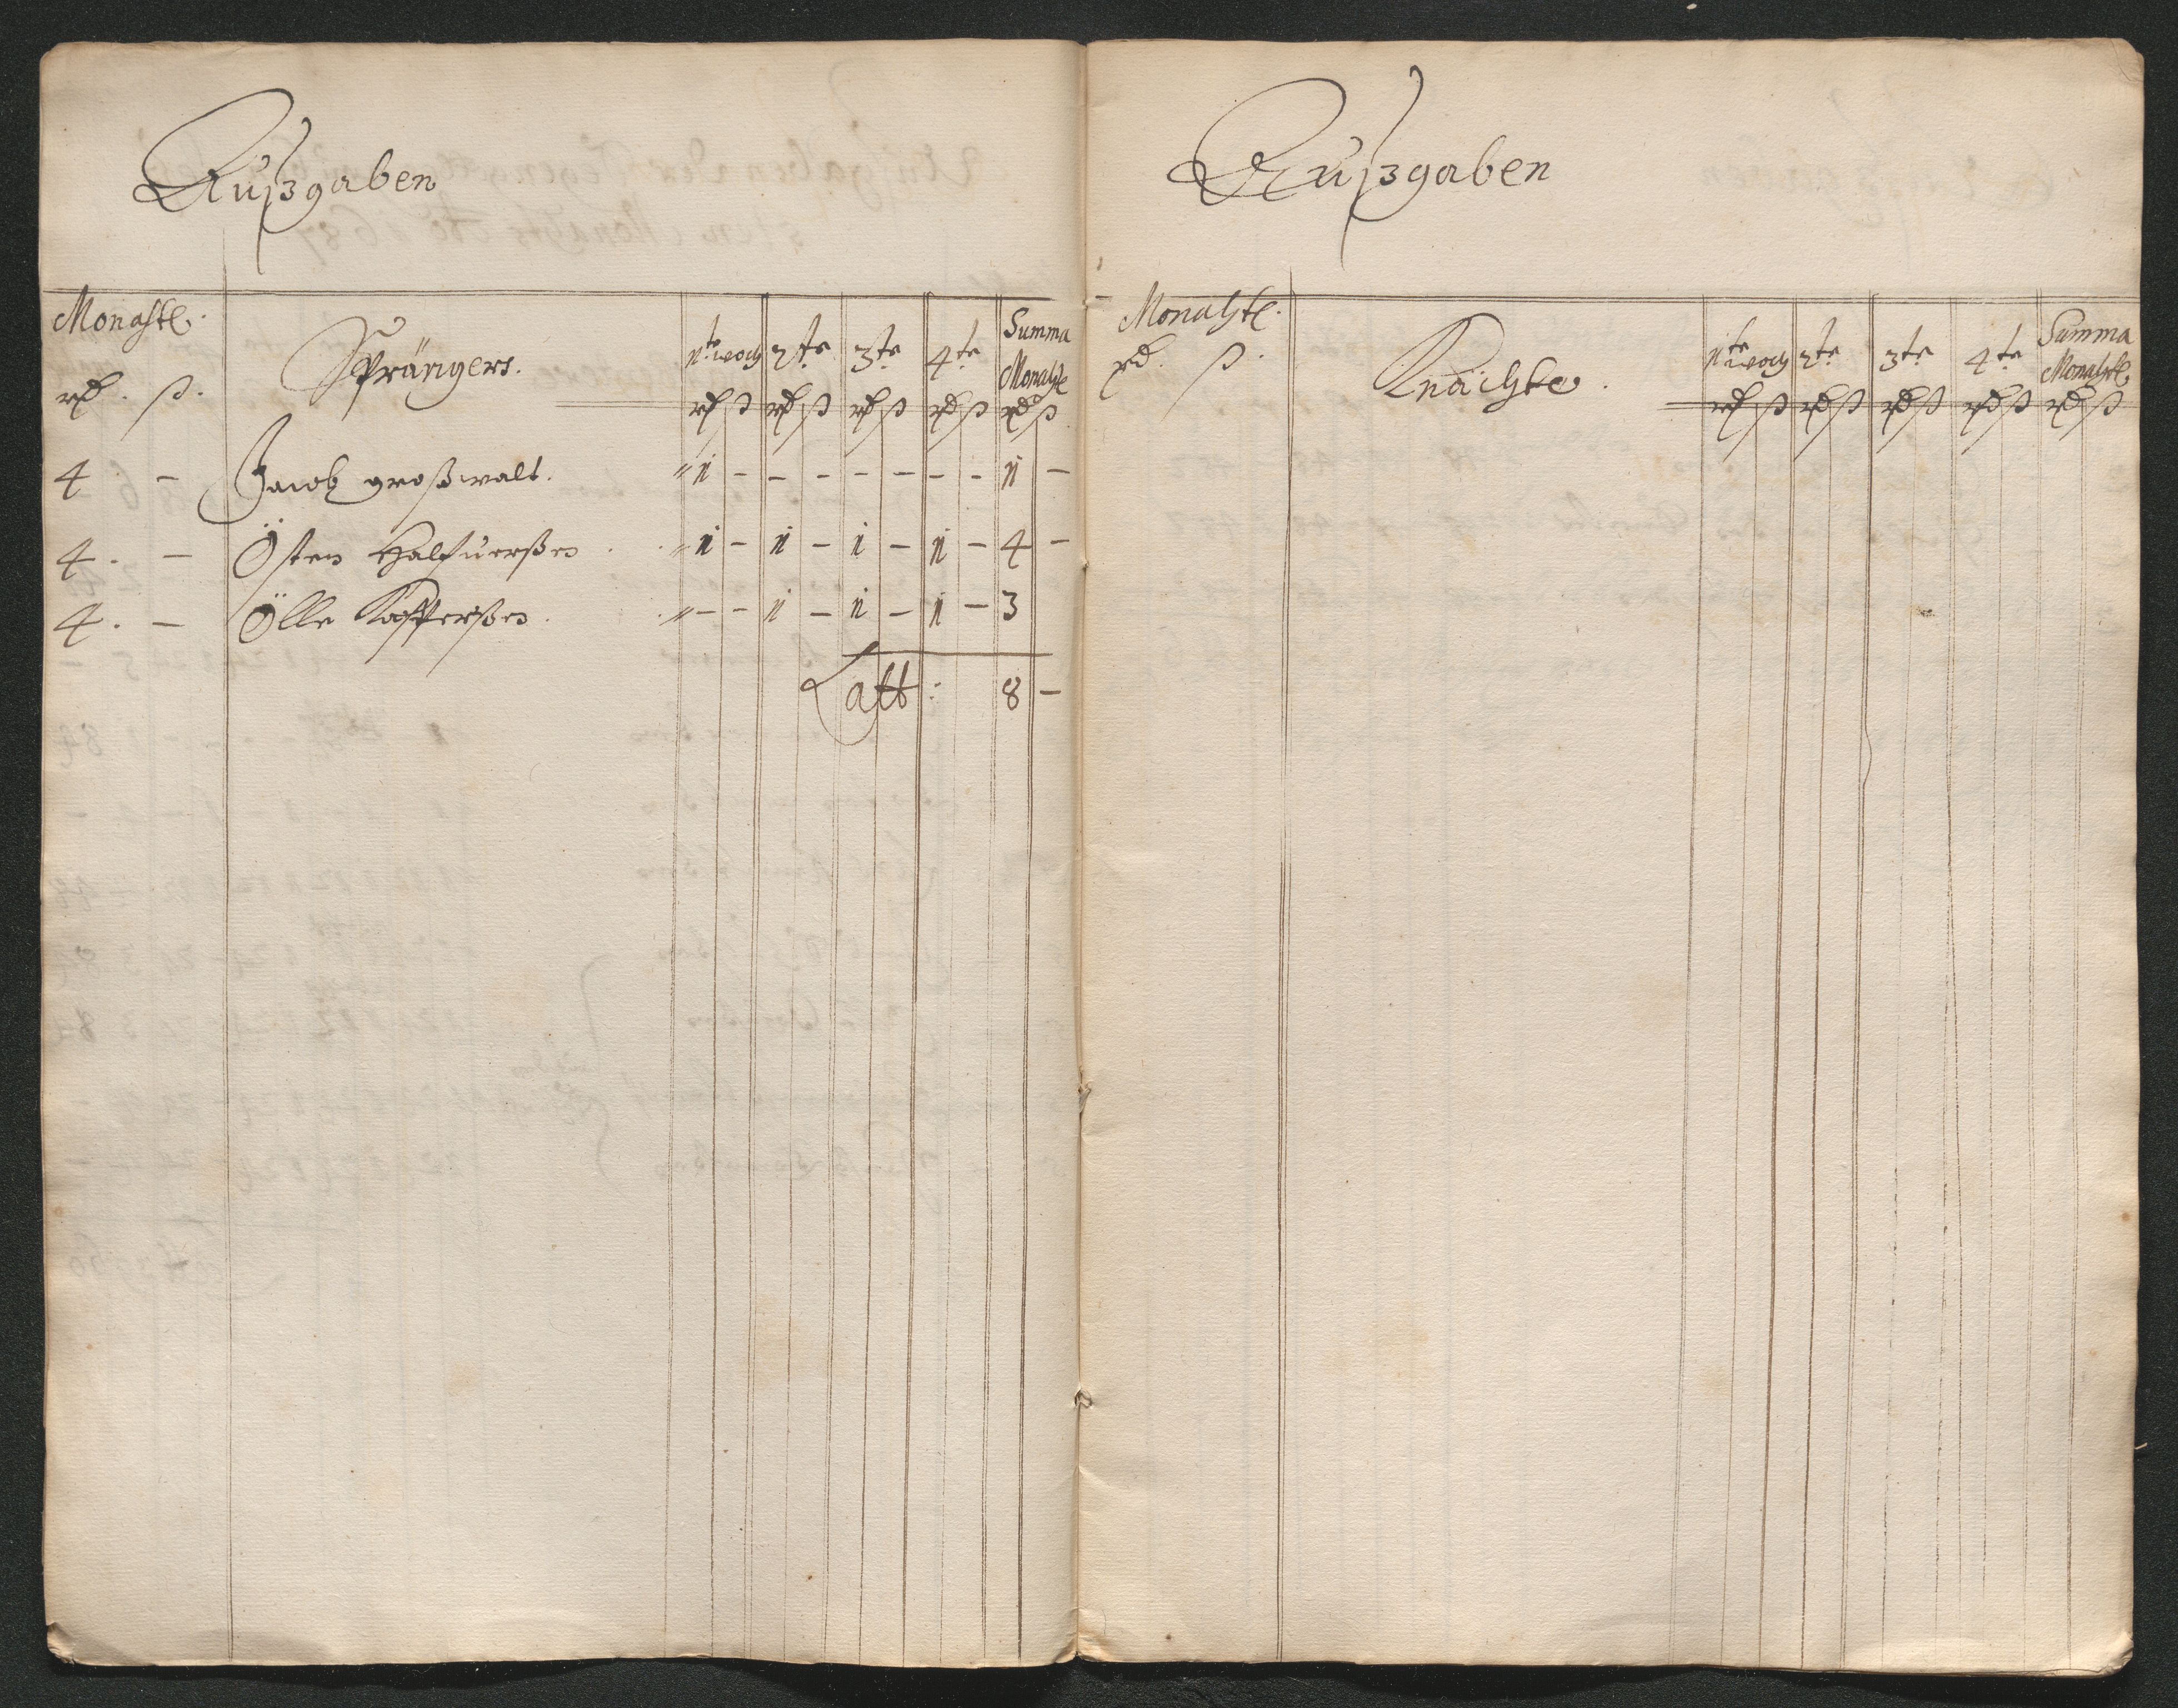 Außgaben
Monahtl.
rd. ß.
Sprängers.
1te woch 2te 3te 4te Summa Monahtl
rd ß rd ß rd ß rd ß rd ß
4 - Jacob großwalt. " 1 - - - - - - - 1 -
4. - Östen Halfuerßen. " 1 - 1 - 1 - 1 - 4 -
4. - Ölle Kafferßen. " - - 1 - 1 - 1 - 3
Latt: 8 -
Außgaben
Monahtl.
rd. ß.
Knächte.
1te woch 2te 3te 4te Summa Monahtl.
rd ß rd ß rd ß rd ß rd ß